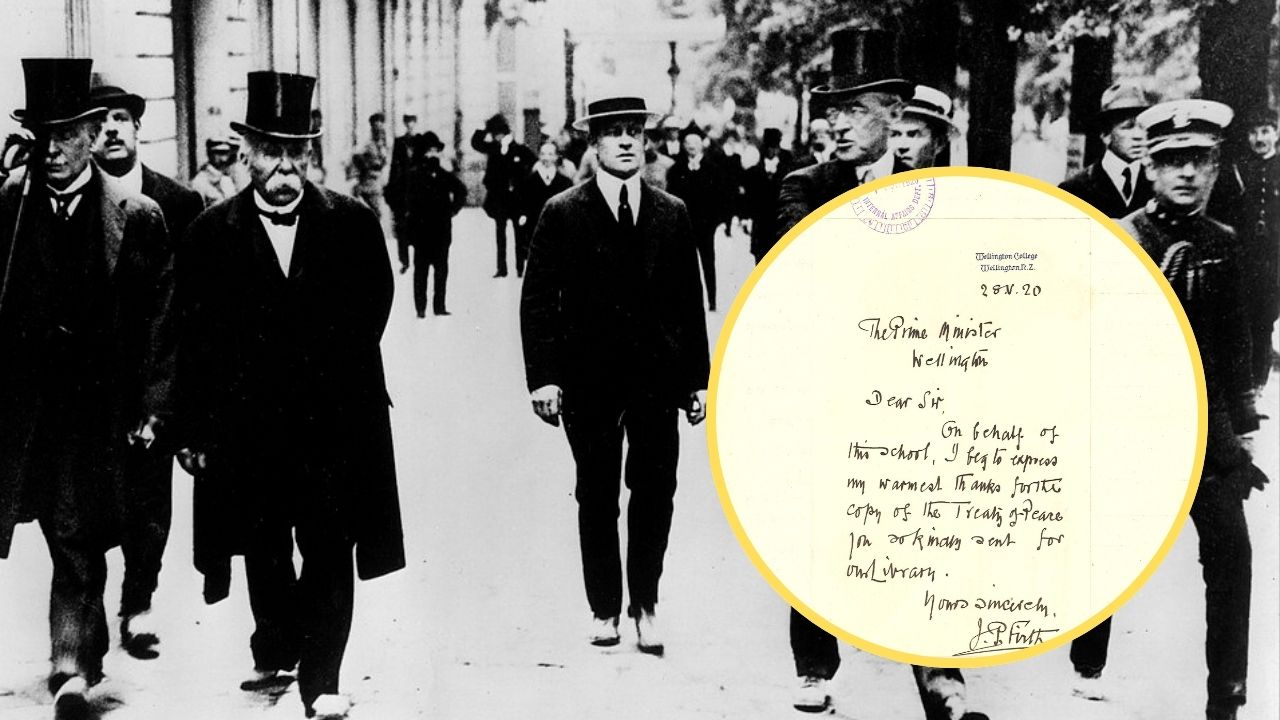 INTERNAL AFFAIRS DEPT
Wellington College
Wellington N.Z.
28.V.20
The Prime Minister
Wellington
Dear Sir,
On behalf of
this school, I beg to express
my warmest thanks for the
copy of the Treaty of Peace
you so kindly sent for
our Library.
Yours sincerely,
J.P. Firth